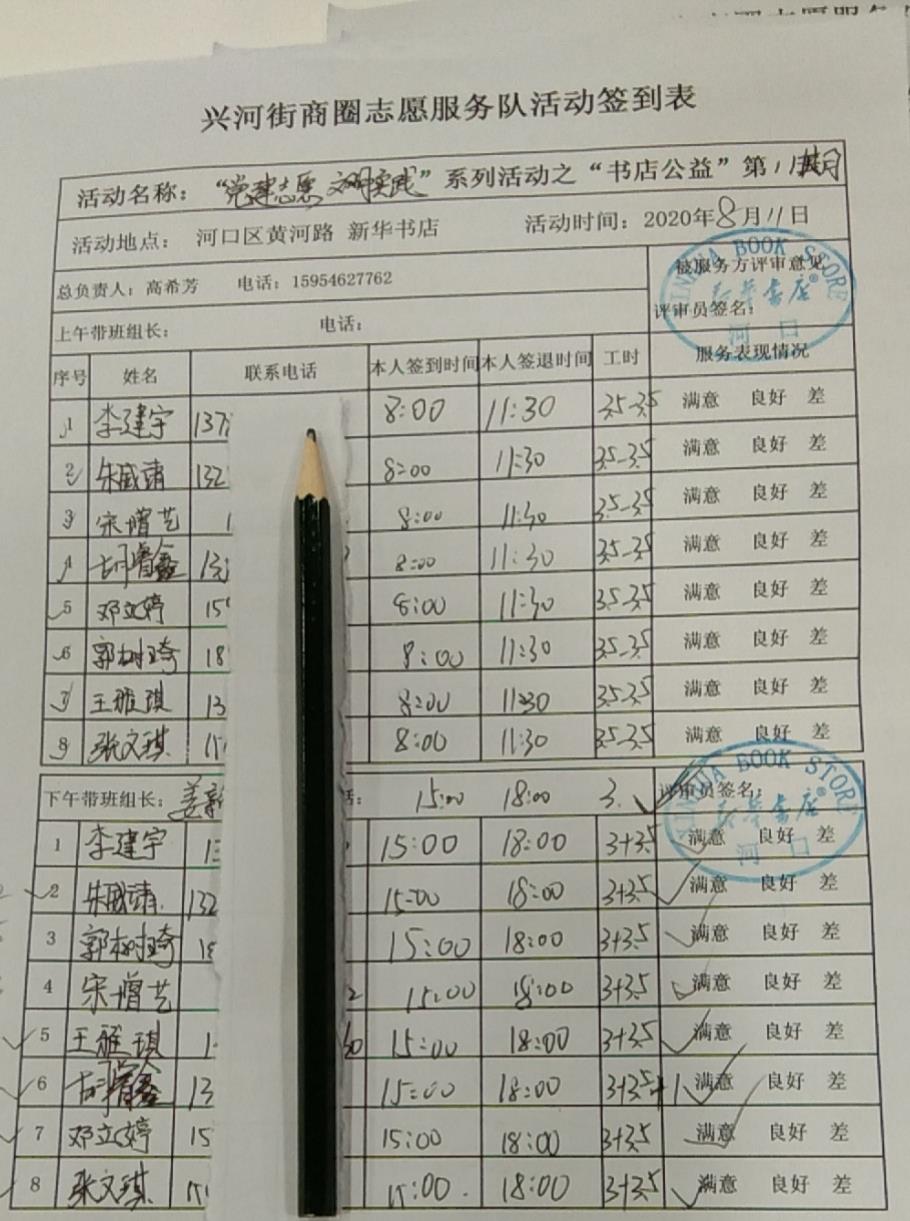 兴河街商圈志愿服务队活动签到表
活动名称：“党建志愿 文明实践”系列活动之“书店公益”第11期
活动地点： 河口区黄河路 新华书店 活动时间：2020年8月11日
总负责人：高希芳 电话：15954627762 被服务方评审意见
上午带班组长： 电话： 评审员签名：
XINHUA BOOK STORE
新华书店®
河口
序号 姓名 联系电话 本人签到时间 本人签退时间 工时 服务表现情况
1 李建宇 137 8:00 11:30 3.5-3.5 满意 良好 差
2 朱威靖 132 8:00 11:30 3.5-3.5 满意 良好 差
3 宋增艺 1 8:00 11:30 3.5-3.5 满意 良好 差
4 胡睿鑫 13 8:00 11:30 3.5-3.5 满意 良好 差
5 邓立婷 15 8:00 11:30 3.5-3.5 满意 良好 差
6 郭树琦 18 8:00 11:30 3.5-3.5 满意 良好 差
7 王雅琪 13 8:00 11:30 3.5-3.5 满意 良好 差
8 张文琪 15 8:00 11:30 3.5-3.5 满意 良好 差
下午带班组长：姜 话： 15:00 18:00 3. 评审员签名：
XINHUA BOOK STORE
新华书店®
河口
1 李建宇 13 15:00 18:00 3+3.5 满意 良好 差
2 朱威靖 132 15:00 18:00 3+3.5 满意 良好 差
3 郭树琦 18 15:00 18:00 3+3.5 满意 良好 差
4 宋增艺 2 15:00 18:00 3+3.5 满意 良好 差
5 王雅琪 1 15:00 18:00 3+3.5 满意 良好 差
6 胡睿鑫 13 15:00 18:00 3+3.5+1 满意 良好 差
7 邓立婷 15 15:00 18:00 3+3.5 满意 良好 差
8 张文琪 15 15:00 18:00 3+3.5 满意 良好 差